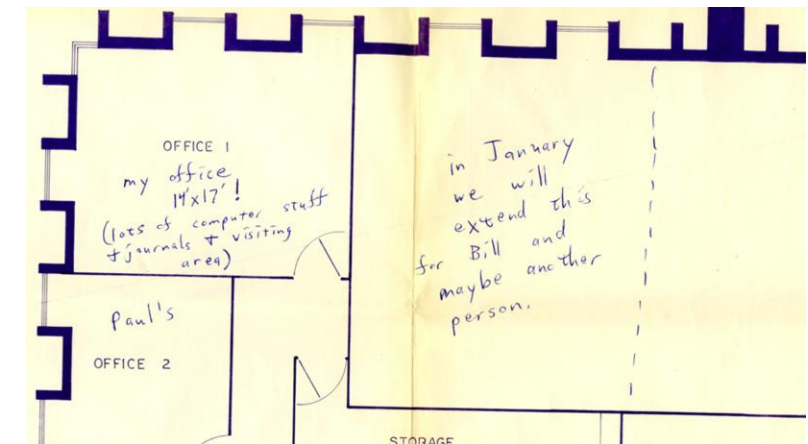 OFFICE 1
my office
14'x17'!
(lots of computer stuff
+ journals + visiting
area)
Paul's
OFFICE 2
in January
we will
extend this
for Bill and
maybe another
person.
STORAGE